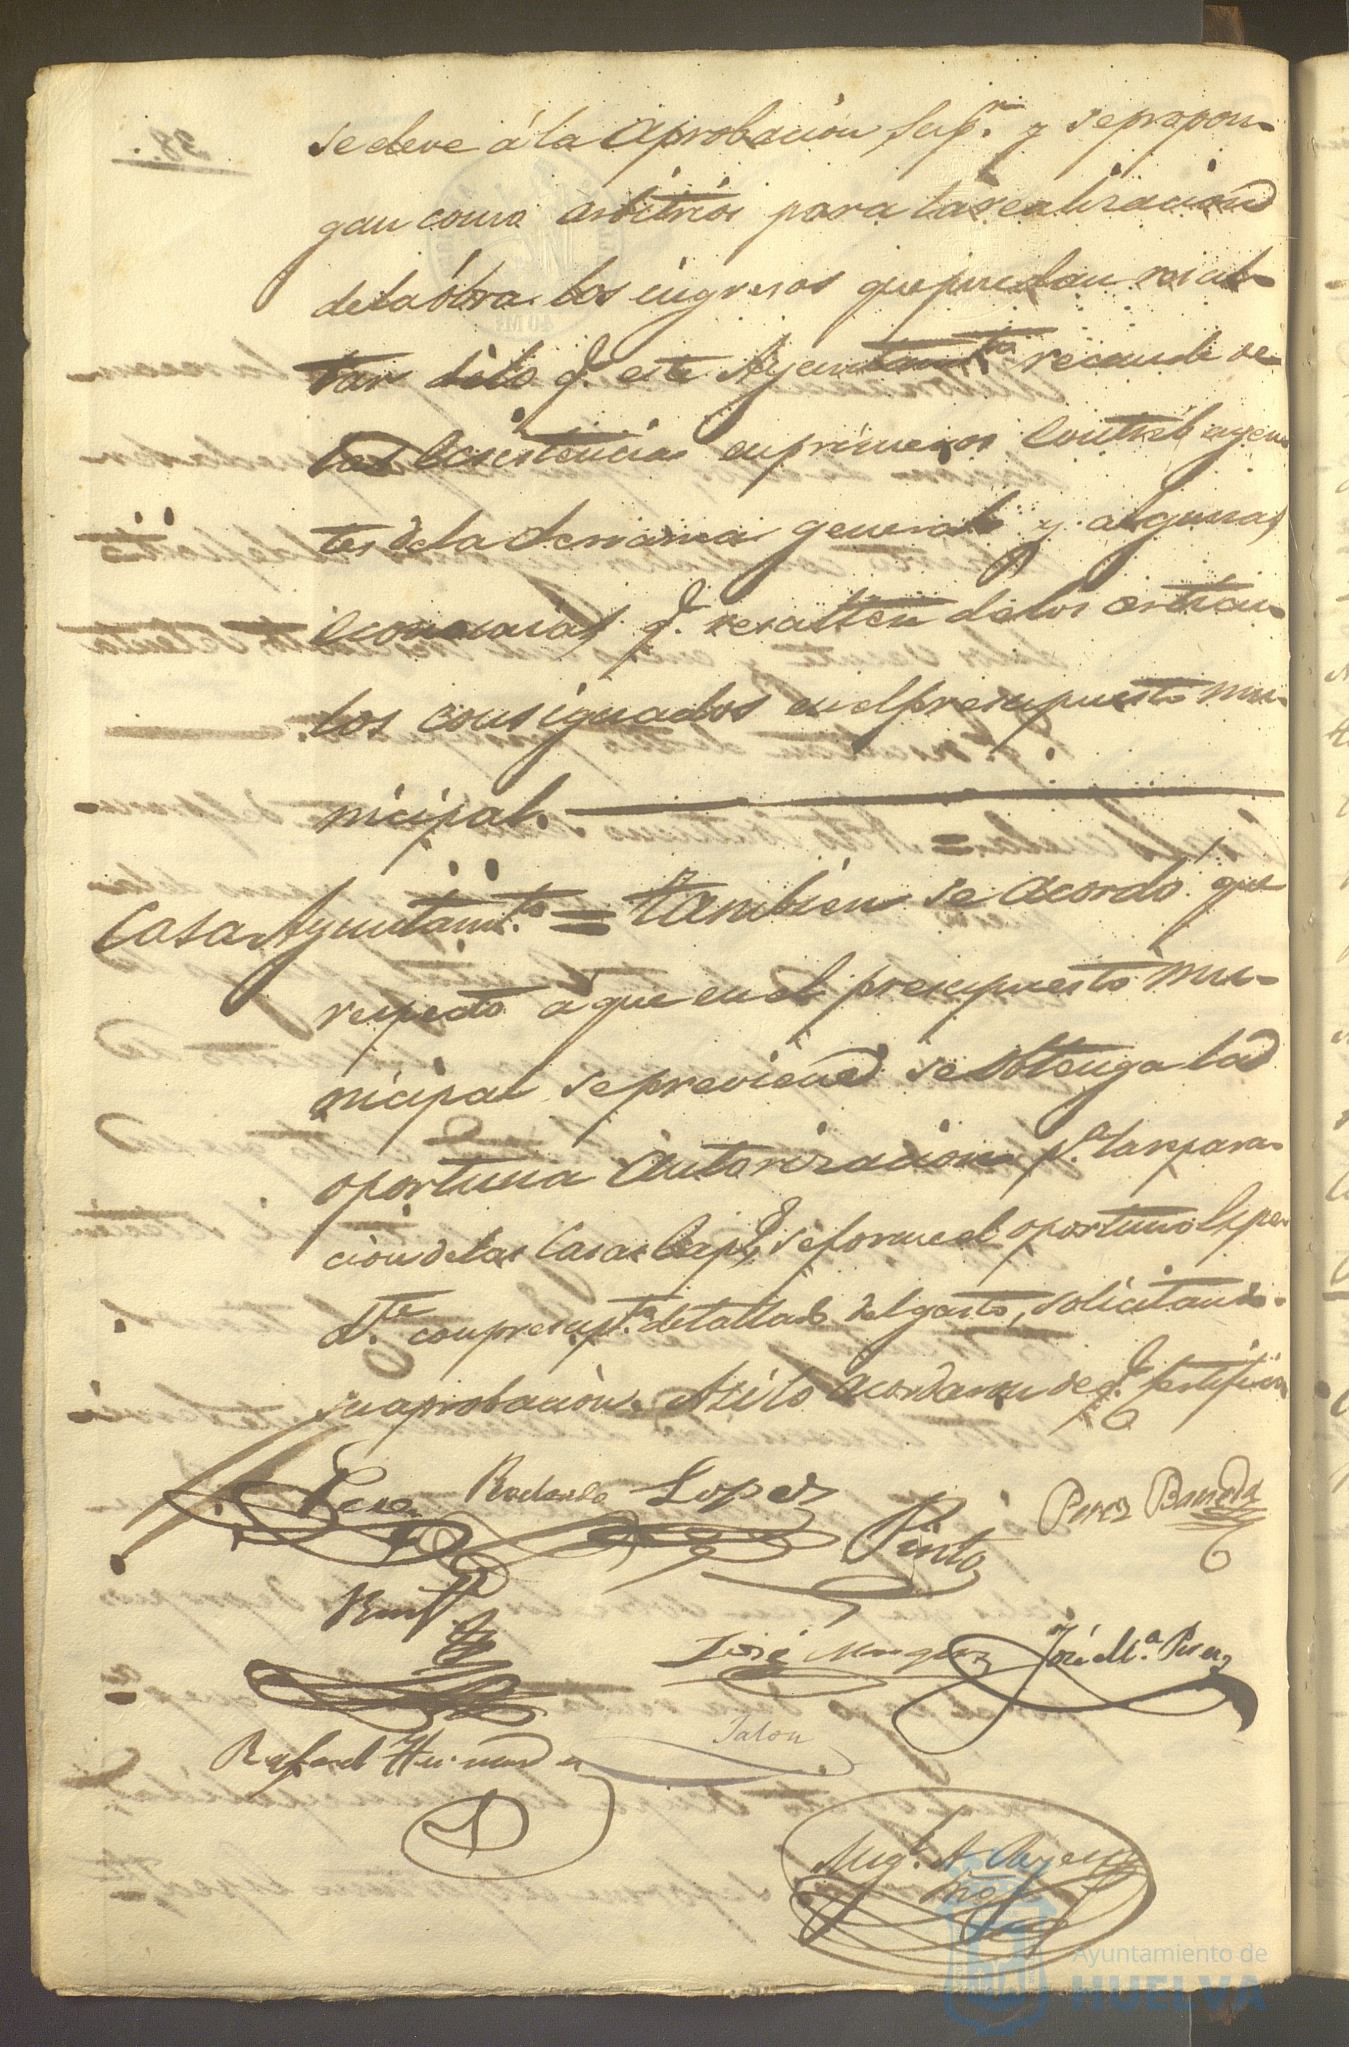 se eleve á la aprobacion Sup.r y se propon-
gan como arbitrios para la realizacion
de la obra los ingresos que puedan resul-
tar de lo q.e este Ayuntam.to recaude de
las existencias en primeros contribuyen-
tes de la derrama general y algunas
economias q.e resulten de los articu-
los consignados en el presupuesto mu-
nicipal.
Casa Ayuntam.to = Tambien se acordó que
respecto á que en el presupuesto mu-
nicipal se previene se obtenga la
oportuna autorizacion p.a la repara-
cion de las Casas Cap.s se forme el oportuno Espe-
d.te con presup.to detallado del gasto, solicitando
su aprobacion. Asi lo acordaron de q.e certifico
Peso Redondo Lopez
Pinto
Perez Barreda
Ruiz
José Marquez José M.a Perez
Rafael Hernandez
Jalon
Mig.l A.
Srio
Ayuntamiento de
HUELVA
38